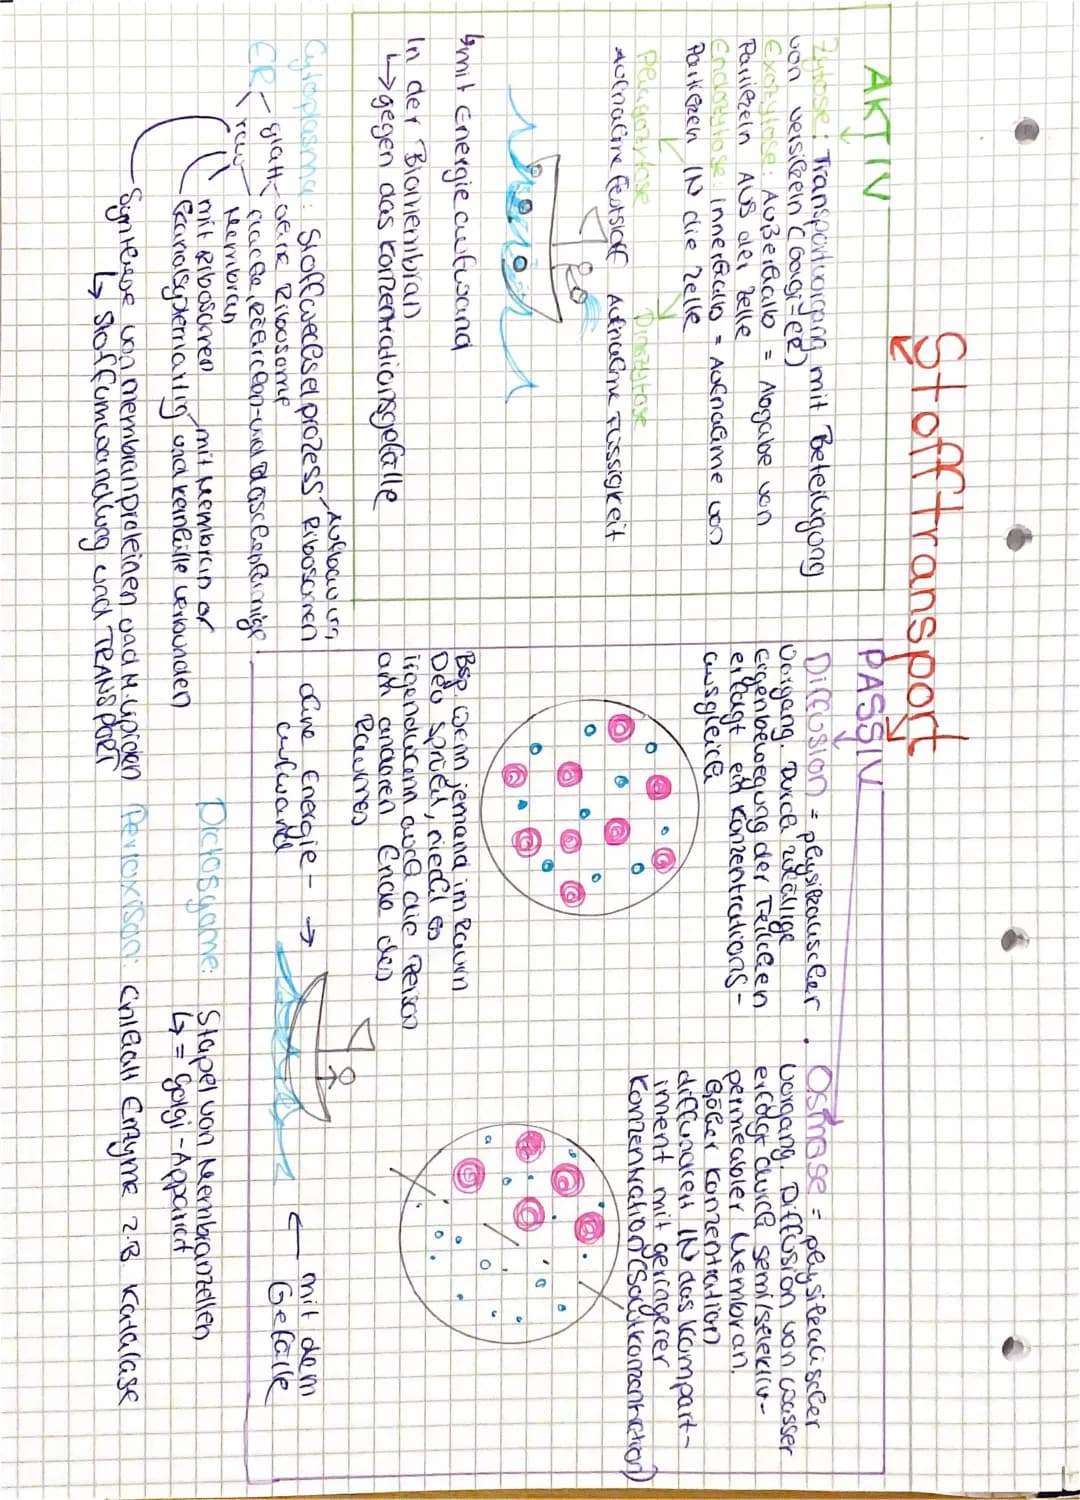 Stofftransport
AKTIV
Zytose: Transportvorgang mit Beteiligung
von vesikeln (Golgi-ER)
Exozytose: Außerhalb = Abgabe von
Partikeln AUS der Zelle
Endozytose: innerhalb = Aufnahme von
Partikeln IN die Zelle
Phagozytose Pinozytose
Aufnahme Feststoff Aufnahme Flüssigkeit
↳mit Energieaufwand
In der Biomembran
↳gegen das Konzentrationsgefälle
PASSIV
Diffusion = physikalischer
Vorgang. Durch zufällige
Eigenbewegung der Teilchen
erfolgt ein Konzentrations-
ausgleich
Bsp wenn jemand im Raum
Deo sprüht, riecht es
irgendwann auch die Person
am anderen Ende des
Raumes
ohne Energie- →
aufwand
Osmose = physikalischer
Vorgang. Diffusion von wasser
erfolgt durch semi/selektiv-
permeabler Membran.
Höher Konzentration
diffundiert IN das Kompart-
iment mit geringerer
Konzentration
← mit dem
Gefälle
Cytoplasma: Stoffwechselprozess
Ribosomen
ER
glatt - ohne Ribosome
rau
flache, röhrchen- und bläschenförmige
Membran
mit Ribosomen
mit Membran or
Kanalsystemartig und kernhülle verbunden
Synthese von membranproteinen und M.lipiden
↳ Stoffumwandlung und TRANSPORT
Dictosyome: Stapel von Membranzellen
↳ = Golgi-Apparat
Peroxison: Enthält Enzyme z.B Katalase